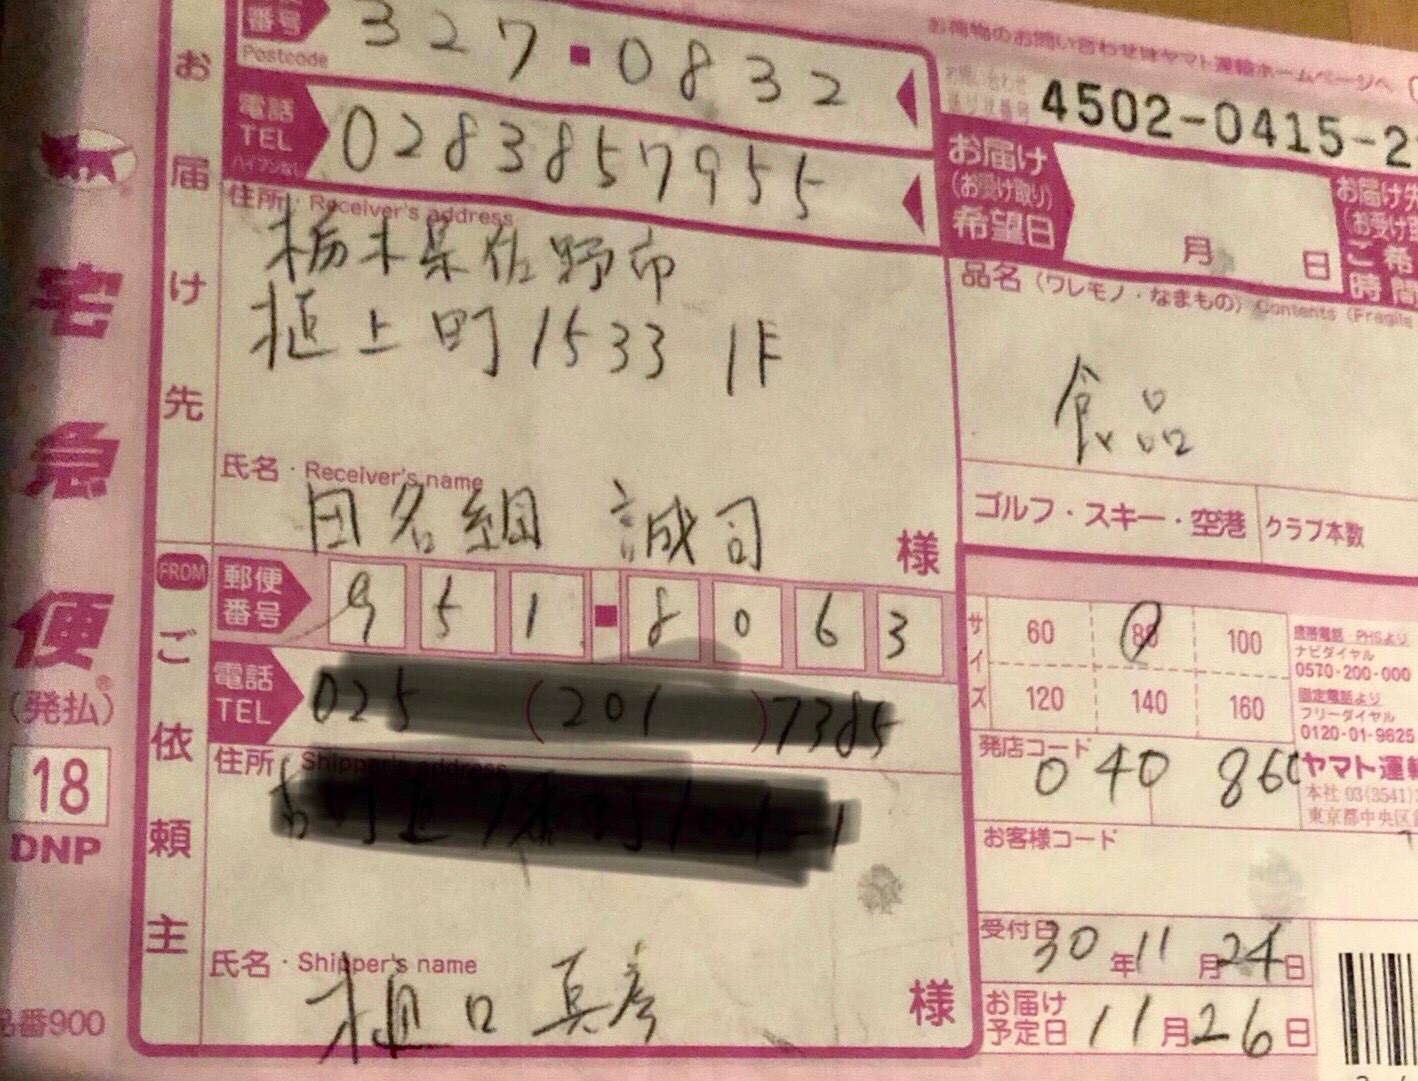 番号
Postcode
327-0832
電話
TEL
ハイフンなし
0283857955
お届け先
住所・Receiver's address
栃木県佐野市
植上町1533 1F
氏名・Receiver's name
田名網 誠司
様
FROM
ご依頼主
郵便
番号
951-8063
電話
TEL
住所
氏名・Shipper's name
口 真彦
様
宅急便
(発払)
18
DNP
番900
お荷物のお問い合わせはヤマト運輸ホームページへ
4502-0415-2
お届け
(お受け取り)
希望日
月 日
お届け
(お受け
ご希
時間
品名(ワレモノ・なまもの) Contents (Fragile
食品
ゴルフ・スキー・空港
クラブ本数
サイズ
60 80 100
120 140 160
携帯電話・PHSより
ナビダイヤル
0570-200-000
固定電話より
フリーダイヤル
0120-01-9625
発店コード
040 860
ヤマト運輸
本社 03(3541)
東京都中央区
お客様コード
受付日
30年11月24日
お届け
予定日
11月26日